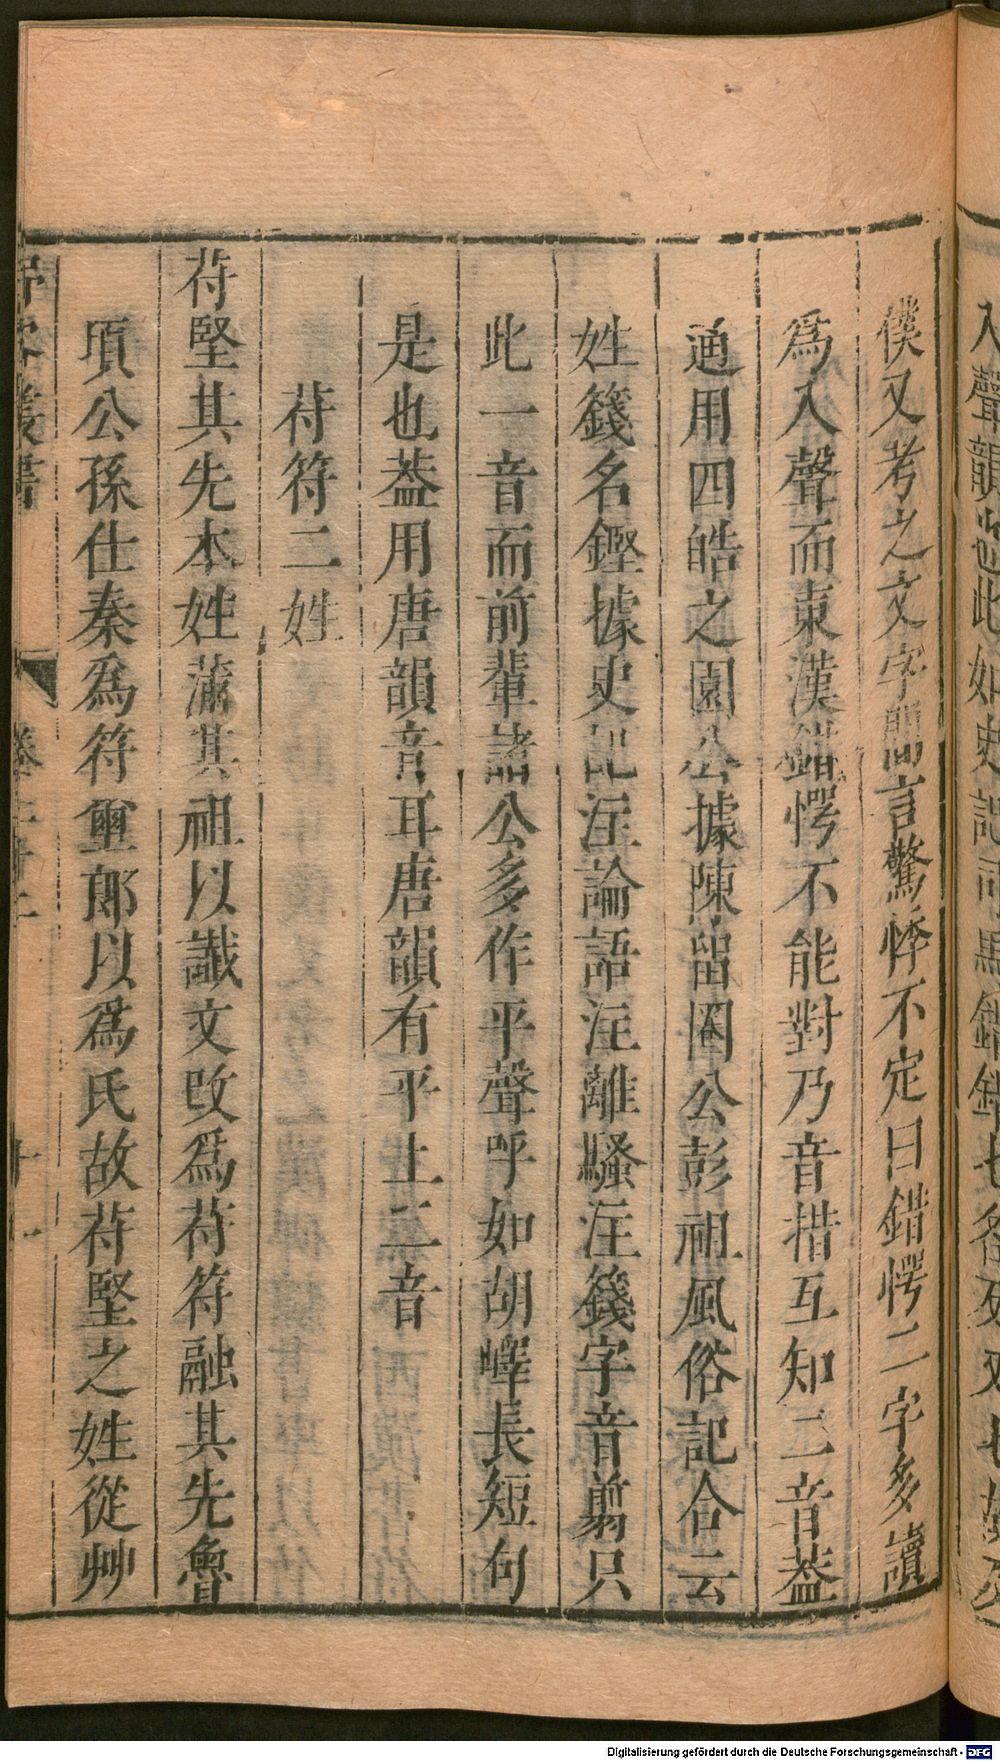 僕又考之文字間言驚愕不定曰錯愕二字多讀
爲入聲而東漢錯愕不能對乃音措互知二音葢
通用四皓之園公據陳留圈公彭祖風俗記合云
姓籛名鏗據史記注論語注離騷注籛字音翦只
此一音而前輩諸公多作平聲呼如胡嶧長短句
是也葢用唐韻音耳唐韻有平上二音
苻符二姓
苻堅其先本姓蒲其祖以讖文改爲苻符融其先魯
頃公孫仕秦爲符璽郎以爲氏故苻堅之姓從艸
Digitalisierung gefördert durch die Deutsche Forschungsgemeinschaft - DFG